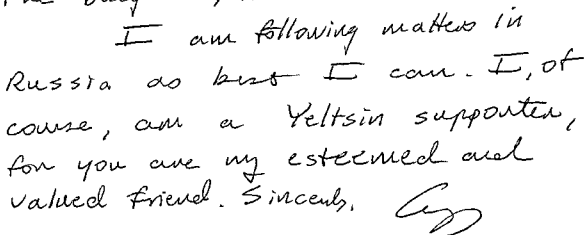 I am following matters in
Russia as best I can. I, of
course, am a Yeltsin supporter,
for you are my esteemed and
valued friend. Sincerely,